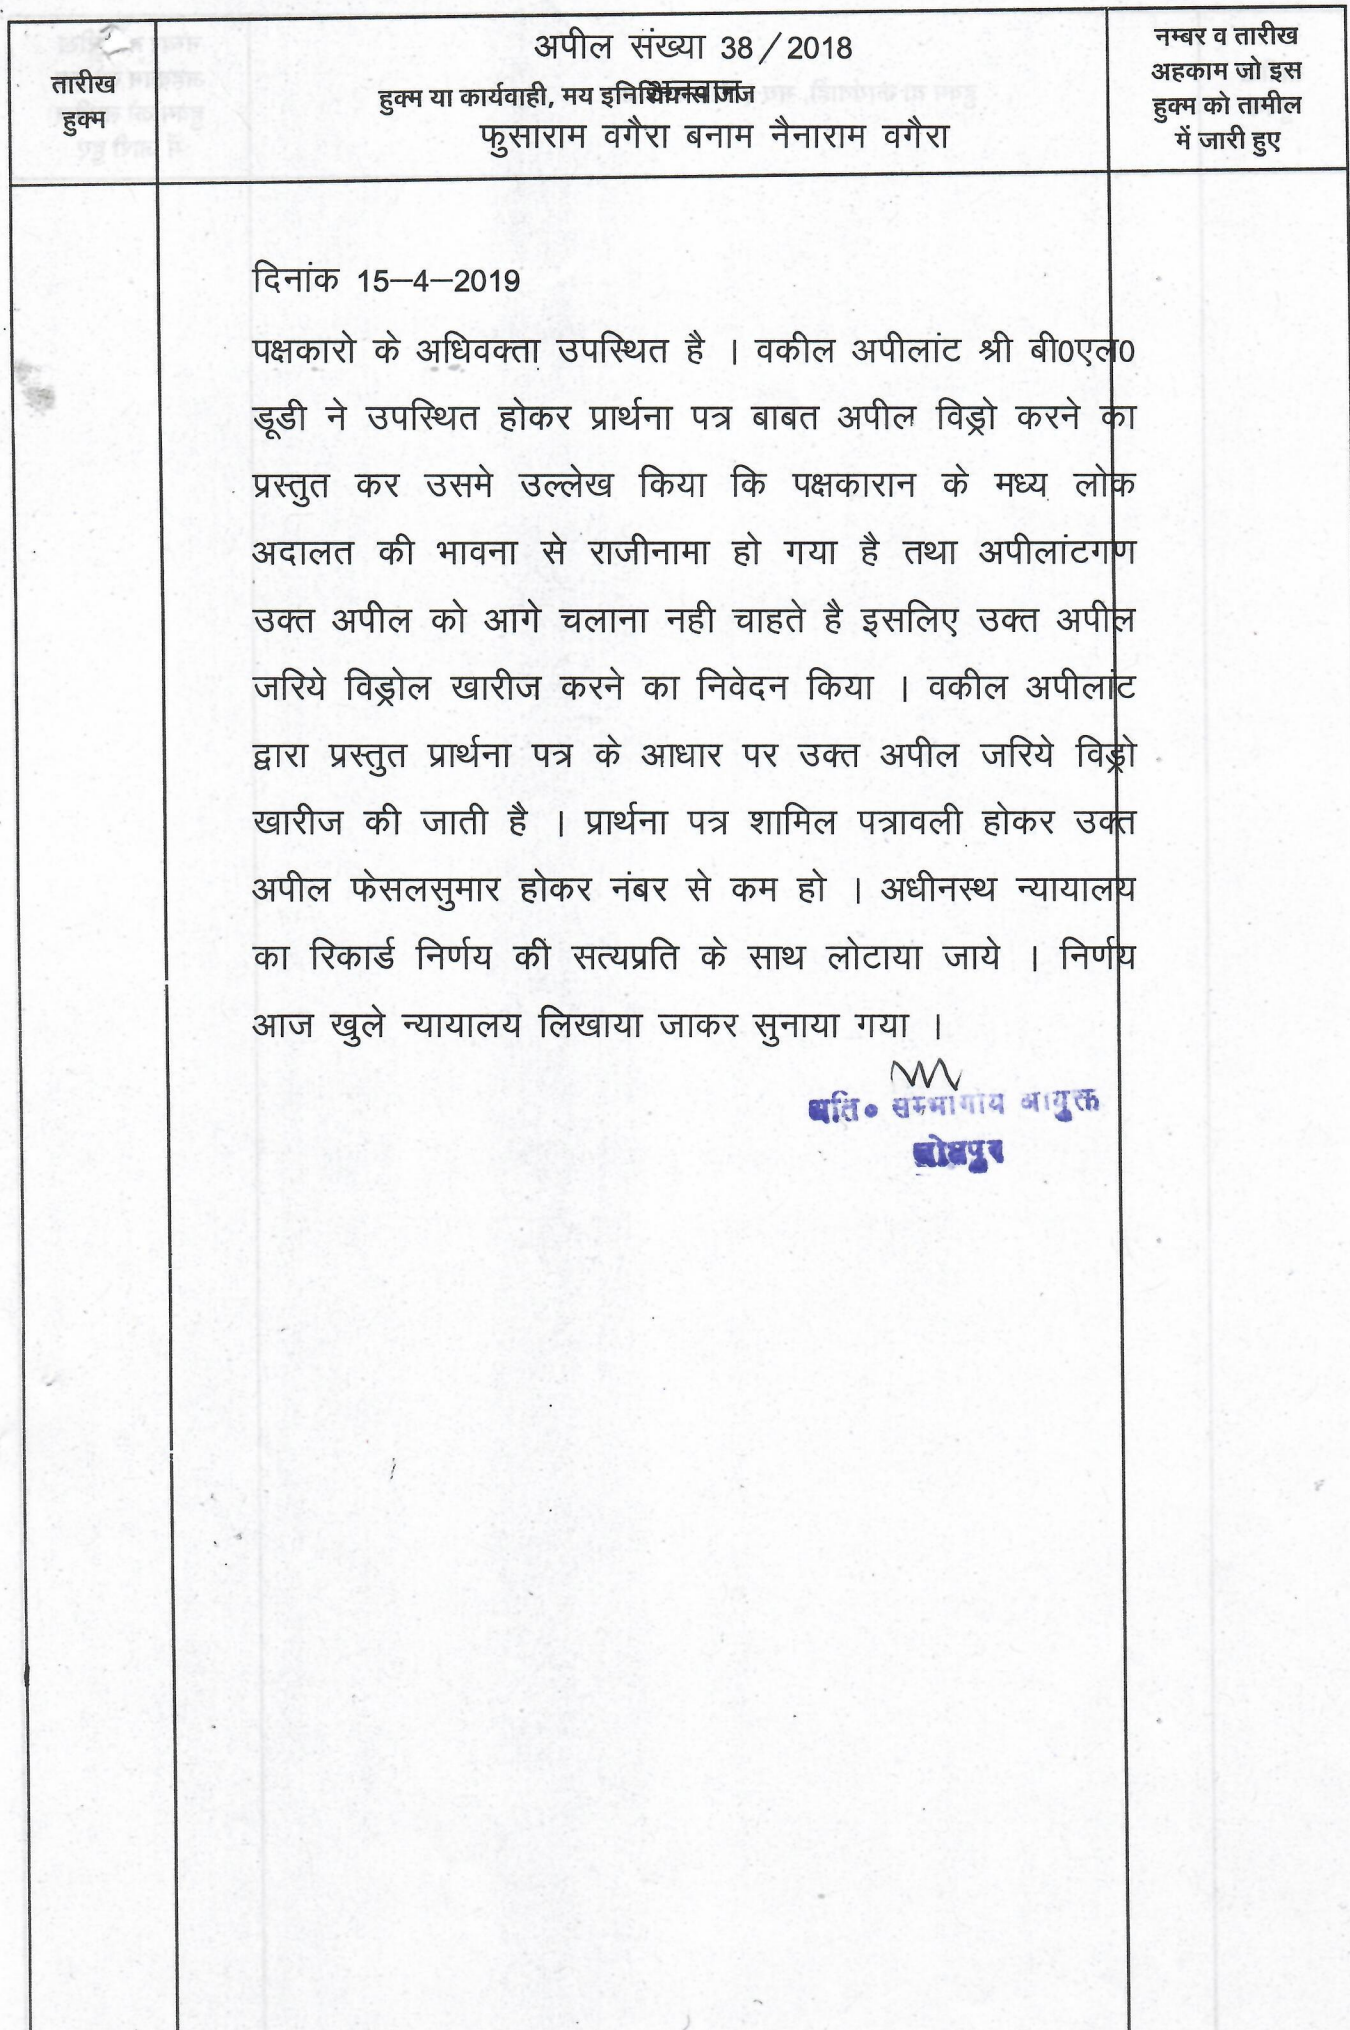 तारीख
हुक्म
अपील संख्या 38/2018
हुक्म या कार्यवाही, मय इनिशियल्स जज
फुसाराम वगैरा बनाम नैनाराम वगैरा
नम्बर व तारीख
अहकाम जो इस
हुक्म को तामील
में जारी हुए
दिनांक 15–4–2019
पक्षकारो के अधिवक्ता उपस्थित है । वकील अपीलांट श्री बी0एल0
डूडी ने उपस्थित होकर प्रार्थना पत्र बाबत अपील विड्रो करने का
प्रस्तुत कर उसमे उल्लेख किया कि पक्षकारान के मध्य लोक
अदालत की भावना से राजीनामा हो गया है तथा अपीलांटगण
उक्त अपील को आगे चलाना नही चाहते है इसलिए उक्त अपील
जरिये विड्रोल खारीज करने का निवेदन किया । वकील अपीलांट
द्वारा प्रस्तुत प्रार्थना पत्र के आधार पर उक्त अपील जरिये विड्रो
खारीज की जाती है । प्रार्थना पत्र शामिल पत्रावली होकर उक्त
अपील फेसलसुमार होकर नंबर से कम हो । अधीनस्थ न्यायालय
का रिकार्ड निर्णय की सत्यप्रति के साथ लोटाया जाये । निर्णय
आज खुले न्यायालय लिखाया जाकर सुनाया गया ।
अति॰ सम्भागीय आयुक्त
जोधपुर